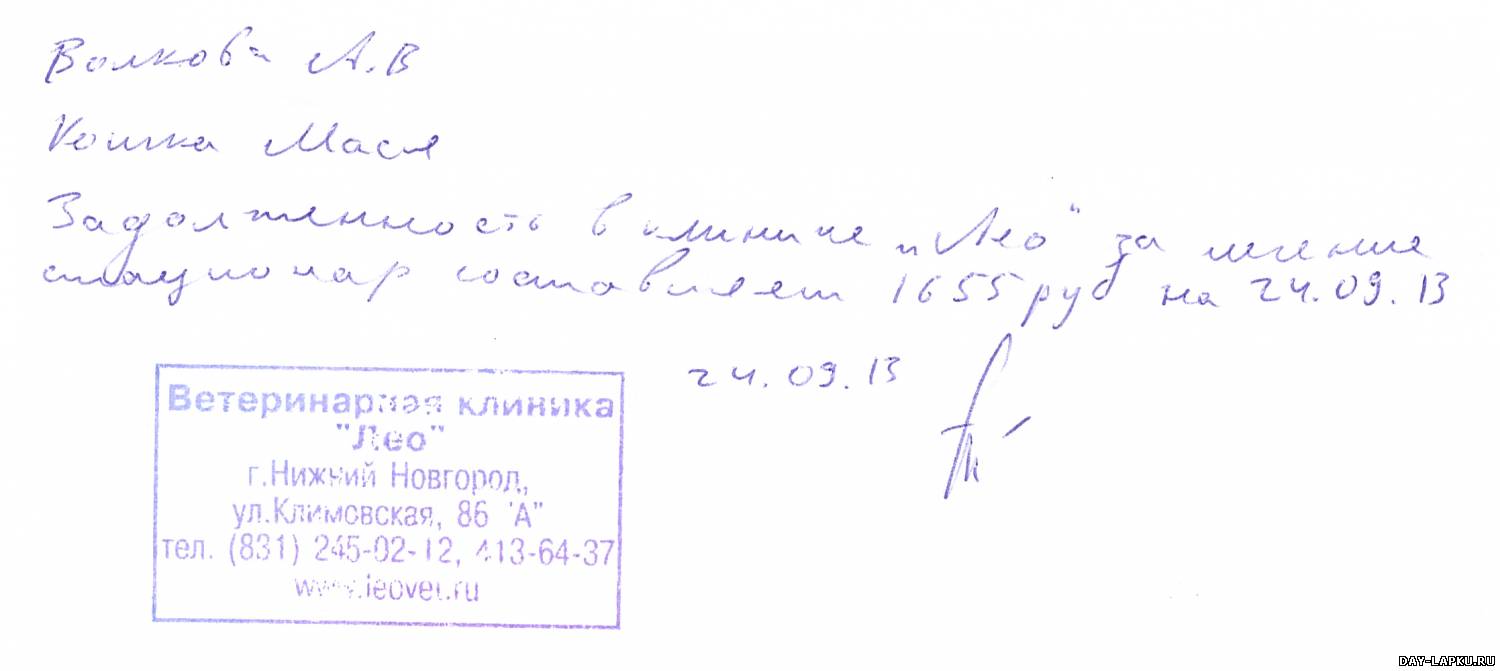 Волкова А.В
Кошка Мася
Задолженность в клинике „Лео" за лечение
стационар составляет 1655 руб на 24.09.13
24.09.13
Ветеринарная клиника
"Лео"
г.Нижний Новгород,
ул.Климовская, 86 "А"
тел. (831) 245-02-12, 413-64-37
www.leovet.ru
DAY-LAPKU.RU